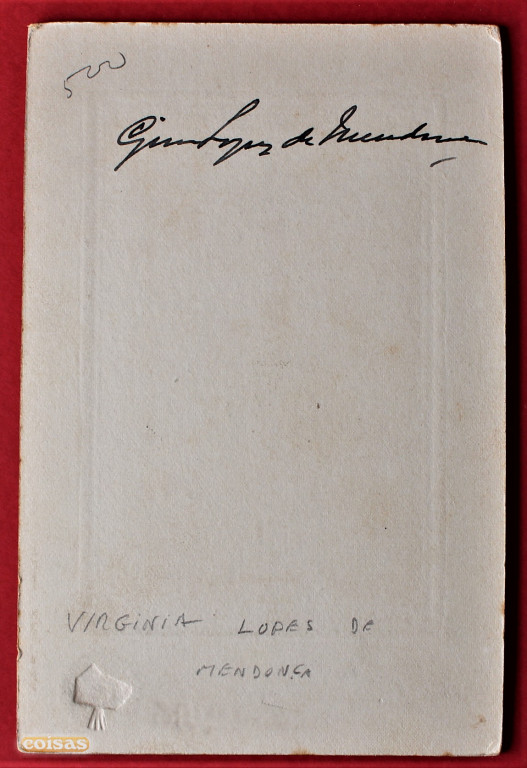 500
Lopes de Mendonça
VIRGINIA LOPES DE
MENDONÇA
coisas